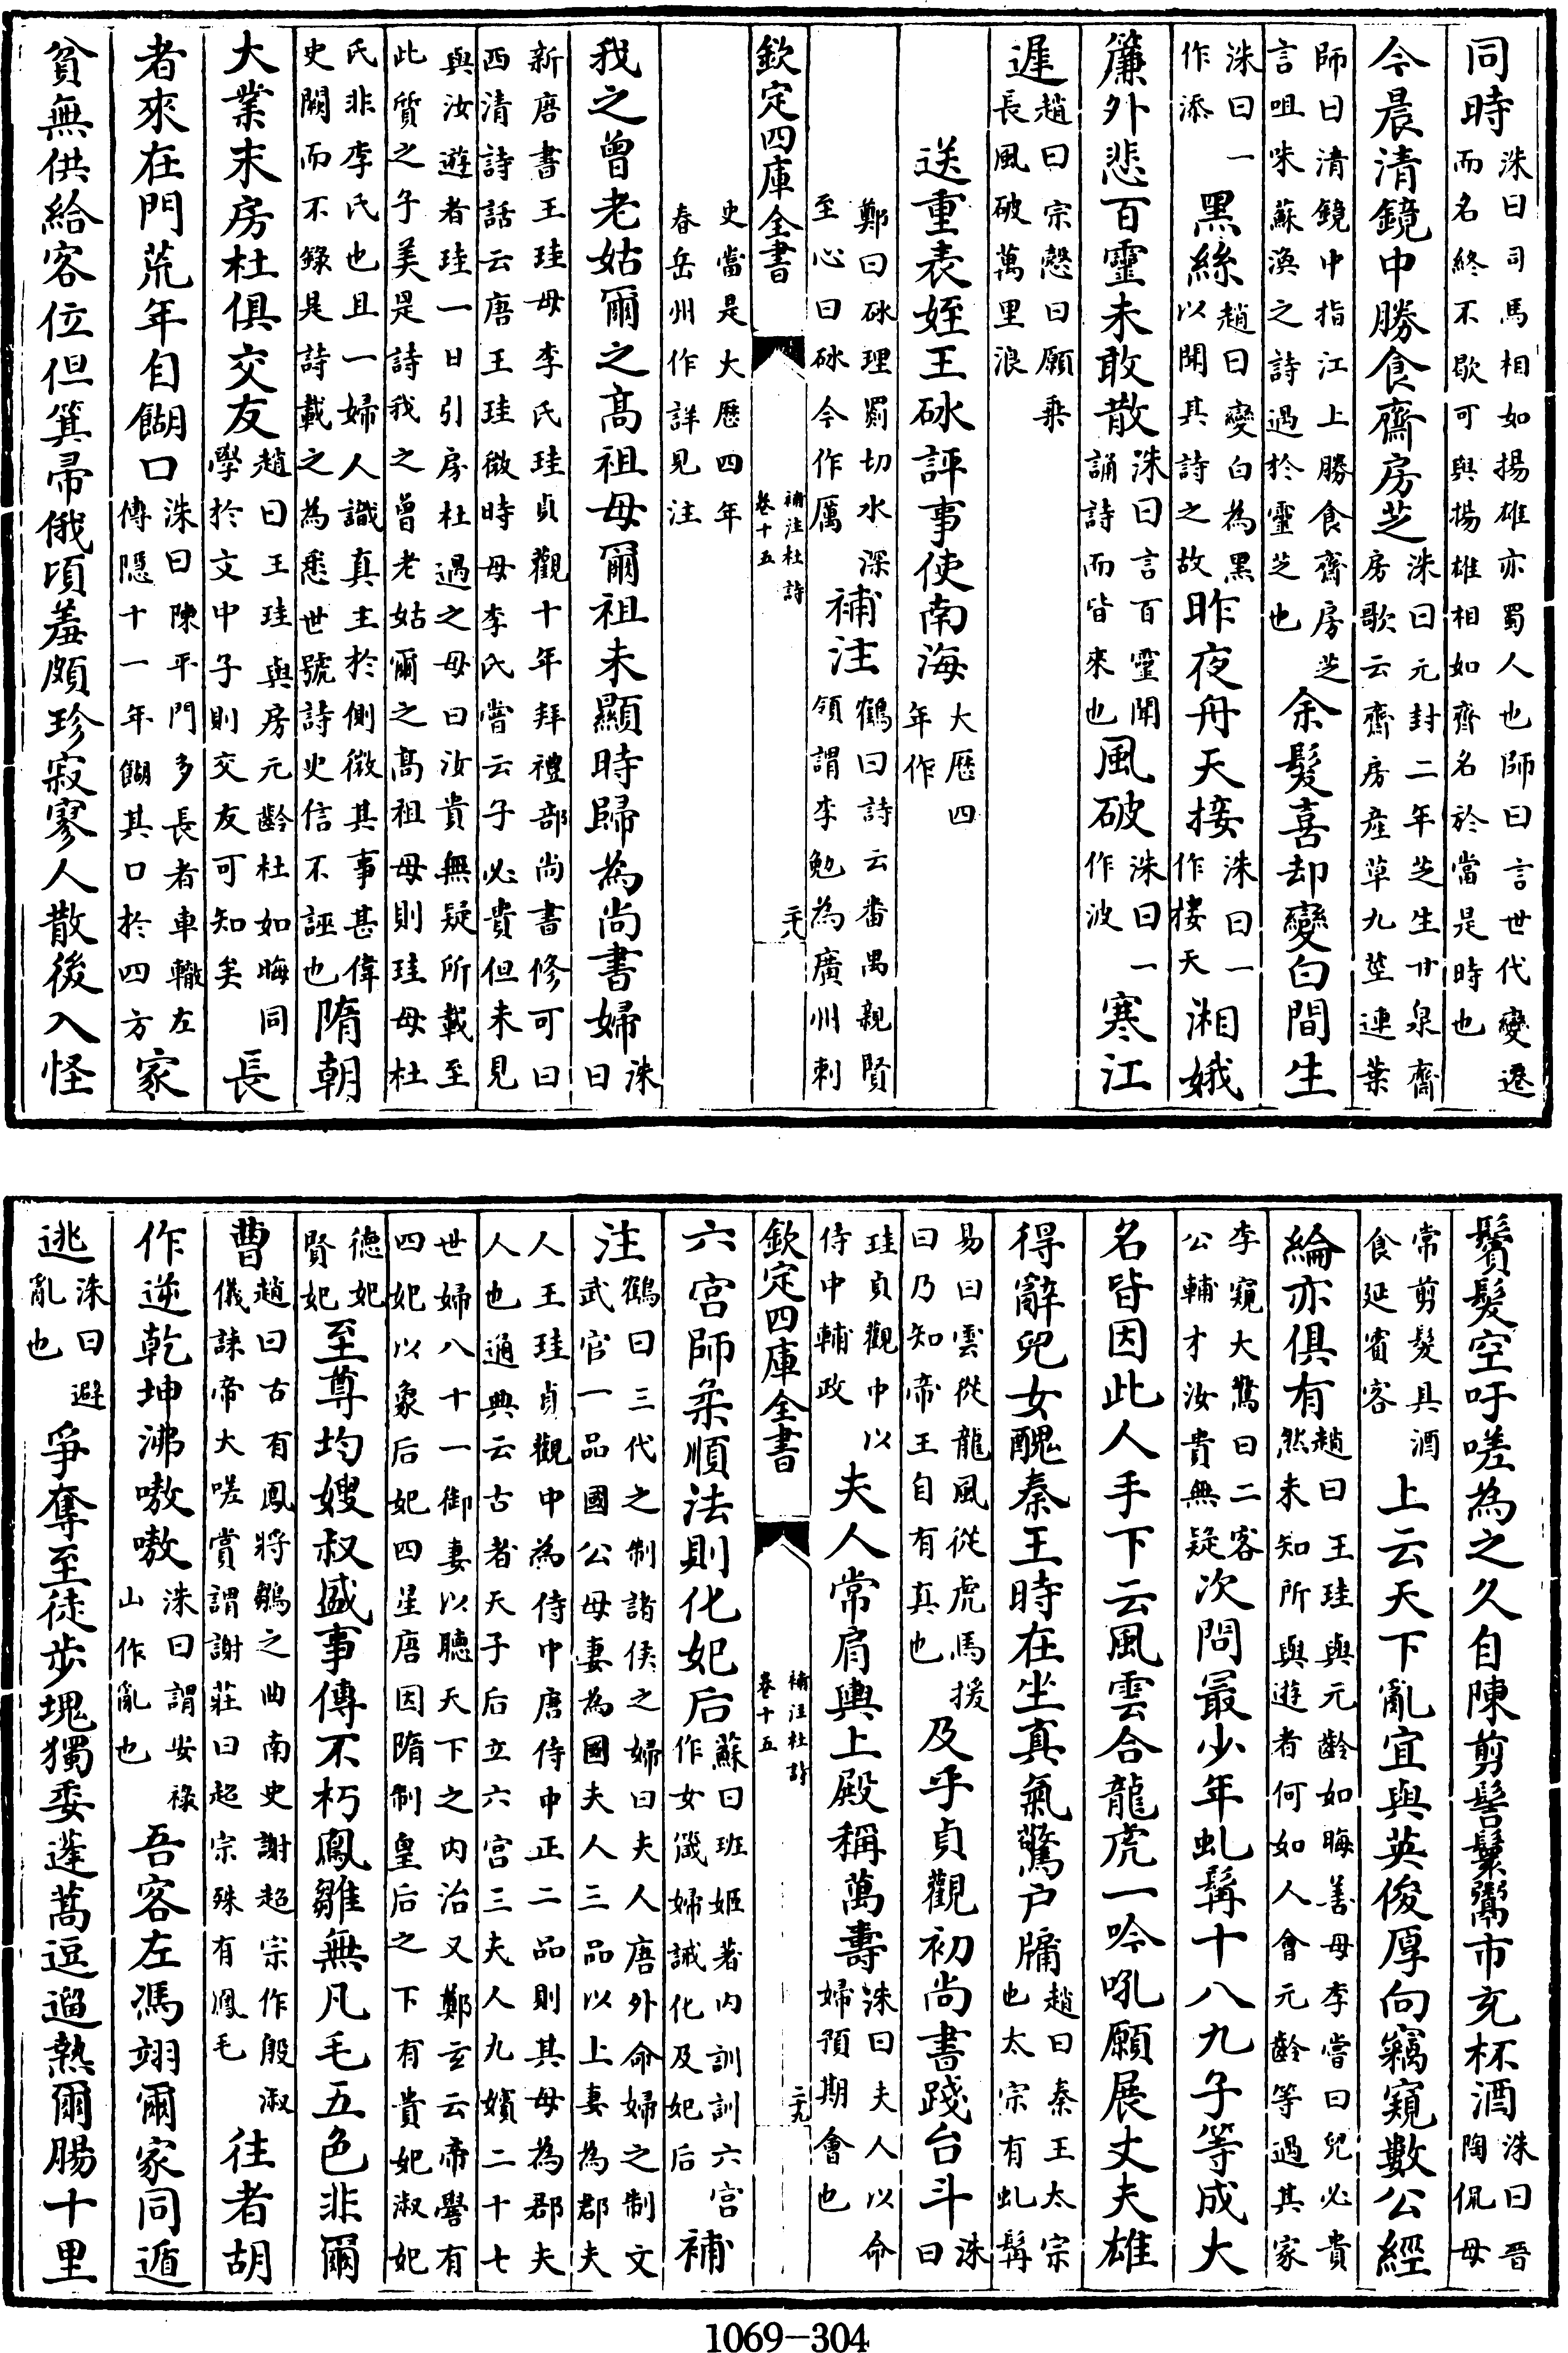 同時洙曰司馬相如揚雄亦蜀人也師曰言世代變遷而名終不歇可與揚雄相如齊名於當是時也
今晨清鏡中勝食齋房芝洙曰元封二年芝生甘泉齋房歌云齊房產草九莖連葉
師曰清鏡中指江上勝食齋房芝言咀味蘇渙之詩過於靈芝也余髮喜却變白間生
洙曰一作添黑絲趙曰變白為黑以聞其詩之故昨夜舟天接洙曰一作樓天湘娥
簾外悲百靈未敢散洙曰言百靈聞誦詩而皆來也風破洙曰一作波寒江
遲趙曰宗慤曰願乘長風破萬里浪
送重表姪王砅評事使南海大歷四年作
鄭曰砅理罽切水深至心曰砅今作厲補注鶴曰詩云番禺親賢領謂李勉為廣州刺
欽定四庫全書 補注杜詩卷十五 二十八
史當是大歷四年春岳州作詳見注
我之曾老姑爾之髙祖母爾祖未顯時歸為尚書婦洙曰
新唐書王珪母李氏珪貞觀十年拜禮部尚書修可曰西清詩話云唐王珪微時母李氏嘗云子必貴但未見
與汝遊者珪一日引房杜過之母曰汝貴無疑所載至此質之子美是詩我之曾老姑爾之髙祖母則珪母杜
氏非李氏也且一婦人識真主於側微其事甚偉史闕而不錄是詩載之為悉世號詩史信不誣也隋朝
大業末房杜俱交友趙曰王珪與房元齡杜如晦同學於文中子則交友可知矣長
者來在門荒年自餬口洙曰陳平門多長者車轍左傳隱十一年餬其口於四方家
貧無供給客位但箕帚俄頃羞頗珍寂寥人散後入怪
鬢髮空吁嗟為之久自陳剪髻鬟鬻市充杯酒洙曰晉陶侃母
常剪髮具酒食延賓客上云天下亂宜與英俊厚向竊窺數公經
綸亦俱有趙曰王珪與元齡如晦善母李嘗曰兒必貴然未知所與遊者何如人會元齡等過其家
李窺大驚曰二客公輔才汝貴無疑次問最少年虬髯十八九子等成大
名皆因此人手下云風雲合龍虎一吟吼願展丈夫雄
得辭兒女醜秦王時在坐真氣驚户牖趙曰秦王太宗也太宗有虬髯
易曰雲從龍風從虎馬援曰乃知帝王自有真也及乎貞觀初尚書踐台斗洙曰
珪貞觀中以侍中輔政夫人常肩輿上殿稱萬壽洙曰夫人以命婦預期會也
欽定四庫全書 補注杜詩卷十五 二十九
六宮師柔順法則化妃后蘇曰班姬著内訓訓六宮作女箴婦誡化及妃后補
注鶴曰三代之制諸侯之婦曰夫人唐外命婦之制文武官一品國公母妻為國夫人三品以上妻為郡夫
人王珪貞觀中為侍中唐侍中正二品則其母為郡夫人也通典云古者天子后立六宮三夫人九嬪二十七
世婦八十一御妻以聽天下之内治又鄭玄云帝嚳有四妃以象后妃四星唐因隋制皇后之下有貴妃淑妃
德妃賢妃至尊均嫂叔盛事傳不朽鳳雛無凡毛五色非爾
曹趙曰古有鳳將鶵之曲南史謝超宗作殷淑儀誄帝大嗟賞謂謝莊曰超宗殊有鳳毛往者胡
作逆乾坤沸嗷嗷洙曰謂安祿山作亂也吾客左馮翊爾家同遁
逃洙曰避亂也爭奪至徒步塊獨委蓬蒿逗遛熱爾腸十里
1069-304